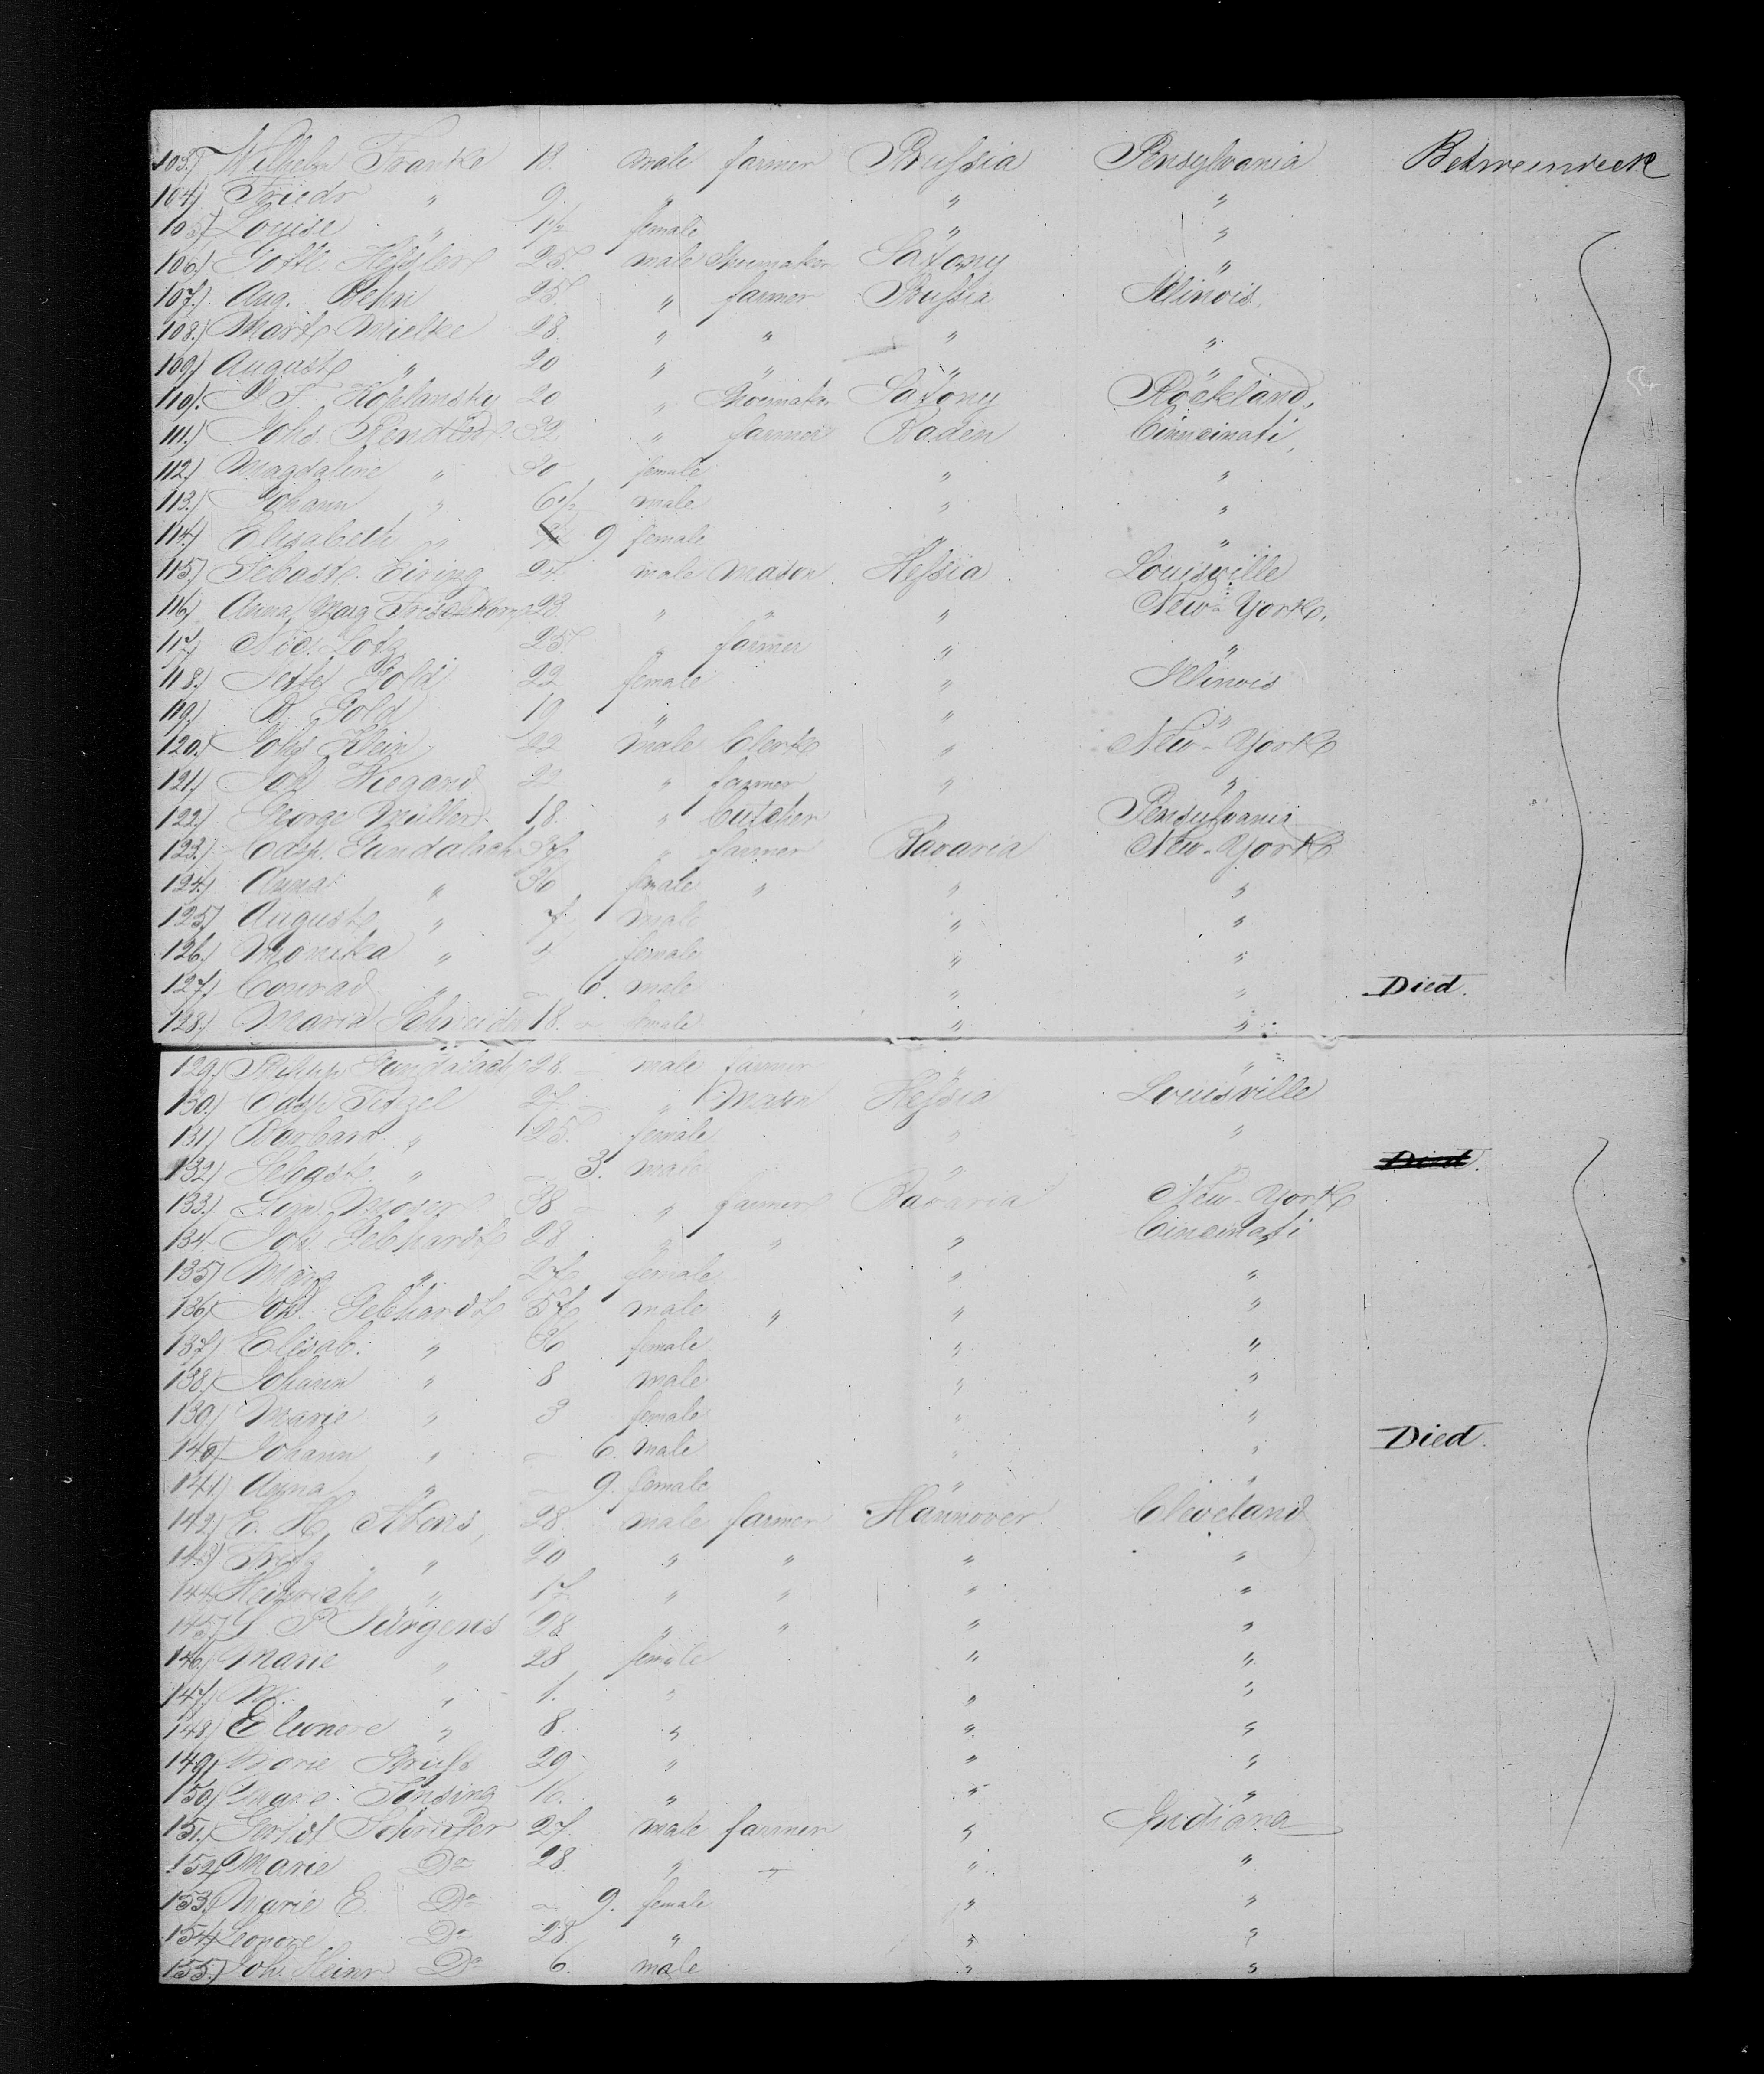 103.) Wilhelm Franke 18. male farmer Prussia Pensylvania Betweendeck
104) Friedr " 9. " " "
105) Louise " 1 1/2 female " "
106) Gottl. Hessler 25. male Shoemaker Saxony "
107.) Aug. Behn 25. " farmer Prussia Illinois.
108.) Mart Mielke 28 " " " "
109) August " 20 " " " "
110). F. Kohlansky 20 " Shoemaker Saxony Rockland,
111.) Johs. 32 " farmer Baden Cinncinati,
112.) Magdalene " 30 female " "
113.) Johann " 6 1/2 male " "
114.) Elisabeth " 9 female " "
115) Sebast. Eiring 24. male Mason Hessia Louisville
116) Anna Marg 28 " " " New-York.
117) Nic. Lotz 25. " farmer " "
118.) Jette Gold 22 female " Illinois
119) B. Gold 19 " " "
120.) Johs Klein 22 male Clerk " New-York
121.) Joh Wiegand 22 " farmer " "
122.) George Müller 18. " butcher Pensylvania
123.) Casp. Gundalach 37 " farmer Bavaria New-York
124.) Anna " 30 female " " "
125) August " 7. male " "
126.) Monika " 4 female " "
127.) Conrad " – 6. male " " Died.
128.) Maria Schneider 18. – female " "
129.) Philipp Gundalach 28 – male farmer " "
130.) Casp Fitzel 27 – " Mason Hessia Louisville
131) Barbara " 25. female " "
132) Sebast. " – 3. male " Died.
133.) Moser 38 – " farmer Bavaria New-York
134. Joh. Gebhardt 28 " " " Cincinati
135) Marg " 27 female " "
136) Joh. Gebhardt 37 male " " "
137) Elisab. " 36 female " "
138.) Johann " 8 male " "
139.) Marie " 3 female " "
140) Johann " – 6. male " " Died.
141.) Anna " – 9. female " "
142) E. H. 28. male farmer Hannover Cleveland
143) Fritz " 20 " " " "
144. Heinrich " 17 " " " "
145) Jürgens 28 " " " "
146.) Marie " 28 female " "
147) M. " 1. " " "
148) Eleonore " 8. " " "
149) Marie 29 " " "
150.) Marie 16. " " "
151.) Schriefer 27. male farmer " Indiana
152. Marie Do 28. " " "
153.) Marie E. Do – 9. female " "
154) Leonore Do 28 " " "
155.) Joh. Heinr Do 6. male " "